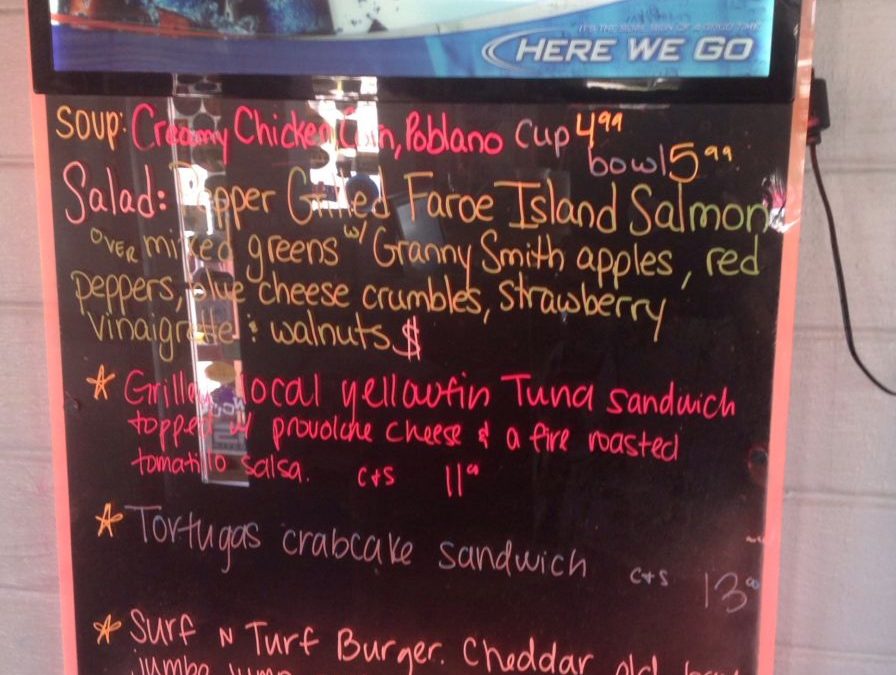 IT'S THE SURE SIGN OF A GOOD TIME
HERE WE GO
SOUP: Creamy Chicken, Corn, Poblano Cup 4.99
bowl 5.99
Salad: Pepper Grilled Faroe Island Salmon
OVER mixed greens w/ Granny Smith apples, red
peppers, blue cheese crumbles, strawberry
vinaigrette & walnuts $
Grilled local yellowfin Tuna sandwich
topped w/ provolone cheese & a fire roasted
tomatillo salsa. c+s 11.00
Tortugas crabcake sandwich c+s 13.00
Surf N Turf Burger. Cheddar, old bay
jumbo lump